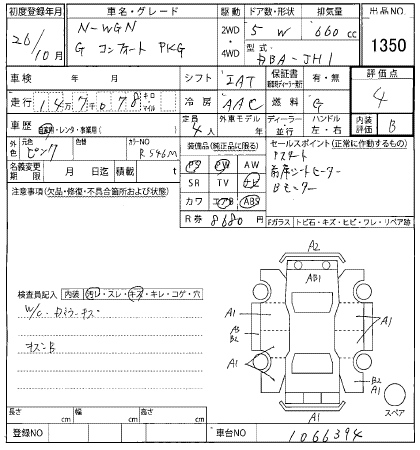 初度登録年月 車名・グレード 駆動 ドア数・形状 排気量 出品NO
26/10月 N-WGN G コンフォート PKG 2WD・4WD 5 W 660cc 1350
型式 DBA-JH1
車検 年 月 シフト IAT 保証書 有・無 評価点
走行 14万7千078 キロ マイル 冷房 AAC 燃料 G 4
車歴 自家用・レンタ・事業用( ) 定員 4人 外車モデル 年 ディーラー 並行 ハンドル 左・右 内装評価 B
外色 元色 ピンク 色替 カラーNO R546M
装備品(純正品に限る) セールスポイント(正常に作動するもの)
PS PW AW Pスタート
名義変更期限 月 日迄 積載 t SR TV ナビ 前席シートヒーター
注意事項(欠品・修復・不具合箇所および状態) カワ エアB ABS Bモニター
R券 8680円
Fガラス トビ石・キズ・ヒビ・ワレ・リペア跡
A2
AB1
検査員記入 内装 汚レ・スレ・キズ・キレ・コゲ・穴
A1 A1
W/C
A3 B2
A1
B2 A1
A1
スペア
長さ cm 幅 cm 高さ cm
登録NO 車台NO 1066394